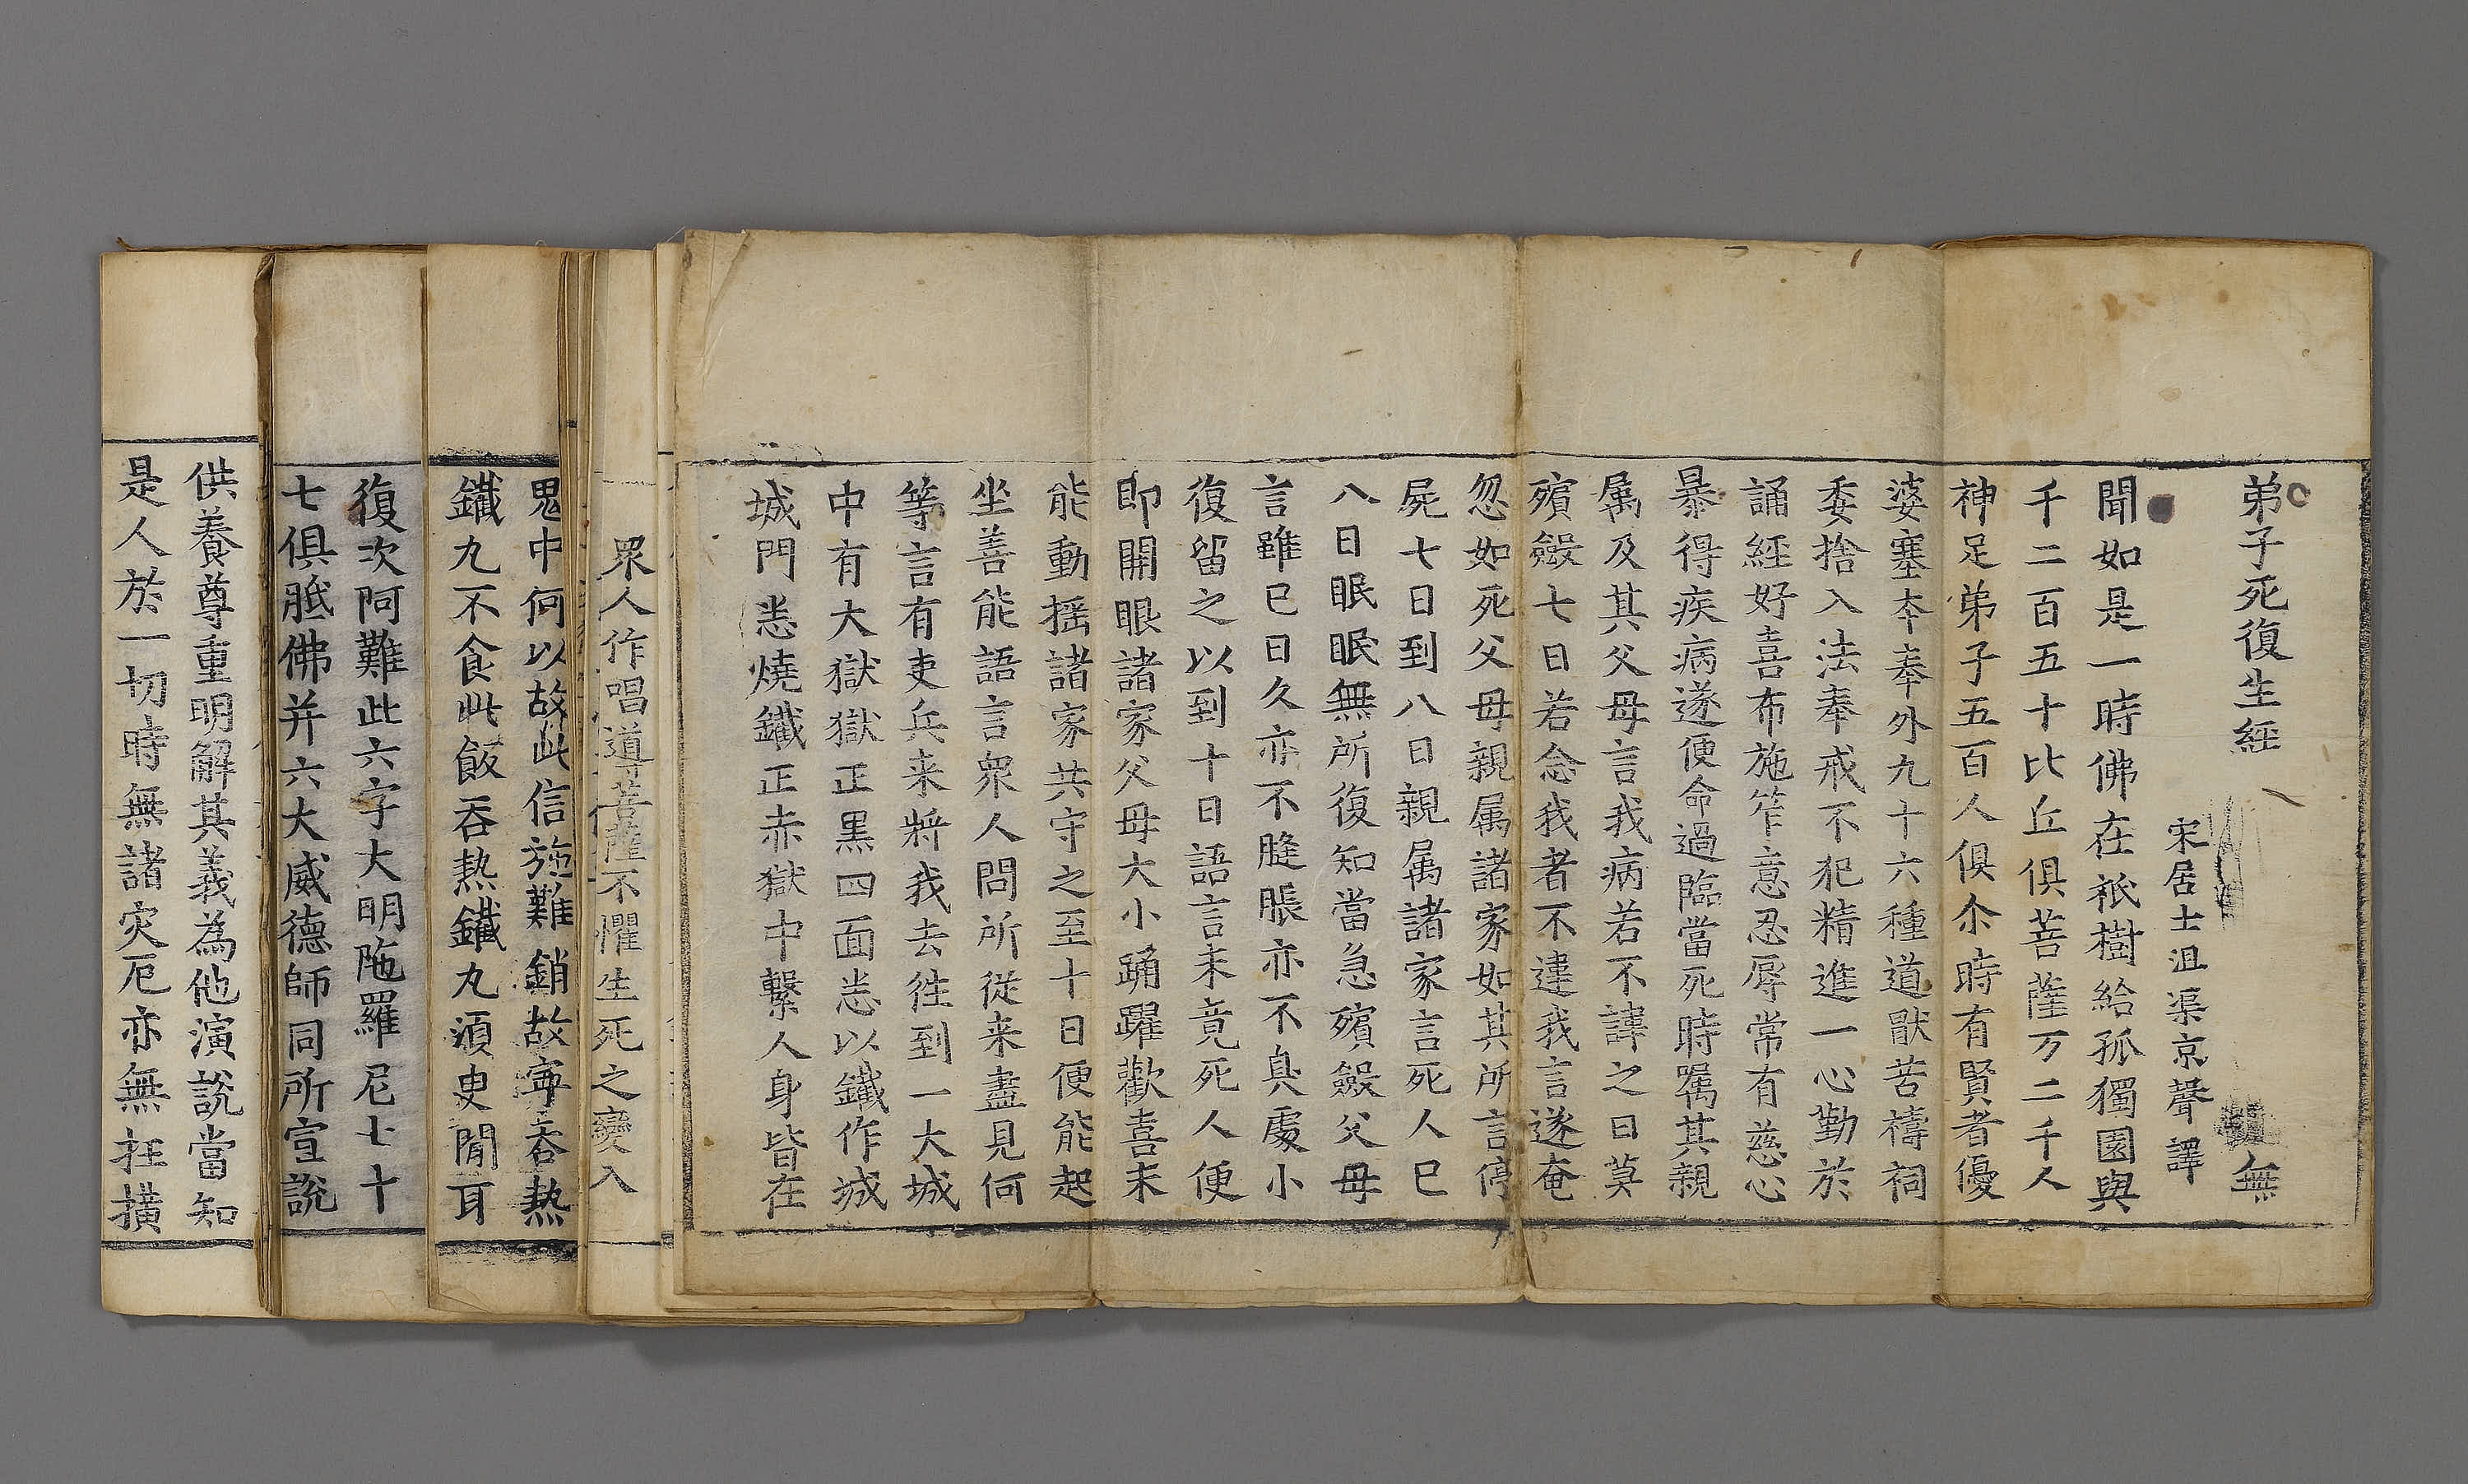 弟子死復生經 無
宋居士沮渠京聲譯
聞如是一時佛在祇樹給孤獨園與
千二百五十比丘俱菩薩万二千人
神足弟子五百人俱尒時有賢者優
婆塞夲奉外九十六種道猒苦禱祠
委捨入法奉戒不犯精進一心勤於
誦經好喜布施笮意忍辱常有慈心
暴得疾病遂便命過臨當死時囑其親
属及其父母言我病若不諱之日莫
殯斂七日若念我者不違我言遂奄
忽如死父母親属諸家如其所言停
屍七日到八日親属諸家言死人巳
八日眠眠無所復知當急殯斂父母
言雖巳日久亦不膖脹亦不臭處小
復留之以到十日語言未竟死人便
即開眼諸家父母大小踊躍歡喜未
能動揺諸家共守之至十日便能起
坐善能語言衆人問所從来盡見何
等言有吏兵来將我去徃到一大城
中有大獄獄正黒四面悉以鐵作城
城門悉燒鐵正赤獄中繫人身皆在
衆人作唱道菩薩不懼生死之變入
鬼中何以故此信施難銷故寧吞熱
鐵九不食此飯吞熱鐵丸湏臾閒耳
復次阿難此六字大明陁羅尼七十
七俱胝佛并六大威德師同所宣說
供養尊重明解其義為他演說當知
是人於一切時無諸灾厄亦無抂横